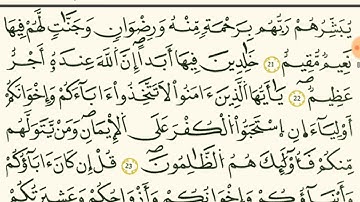 يُبَشِّرُهُمْ رَبُّهُم بِرَحْمَةٍ مِّنْهُ وَرِضْوَانٍ وَجَنَّاتٍ لَّهُمْ فِيهَا
نَعِيمٌ مُّقِيمٌ 21 خَالِدِينَ فِيهَا أَبَدًا إِنَّ اللَّهَ عِندَهُ أَجْرٌ
عَظِيمٌ 22 يَا أَيُّهَا الَّذِينَ ءَامَنُوا لَا تَتَّخِذُوا ءَابَاءَكُمْ وَإِخْوَانَكُمْ
أَوْلِيَاءَ إِنِ اسْتَحَبُّوا الْكُفْرَ عَلَى الْإِيمَانِ وَمَن يَتَوَلَّهُم
مِّنكُمْ فَأُولَٰئِكَ هُمُ الظَّالِمُونَ 23 قُلْ إِن كَانَ ءَابَاؤُكُمْ
وَأَبْنَاؤُكُمْ وَإِخْوَانُكُمْ وَأَزْوَاجُكُمْ وَعَشِيرَتُكُمْ